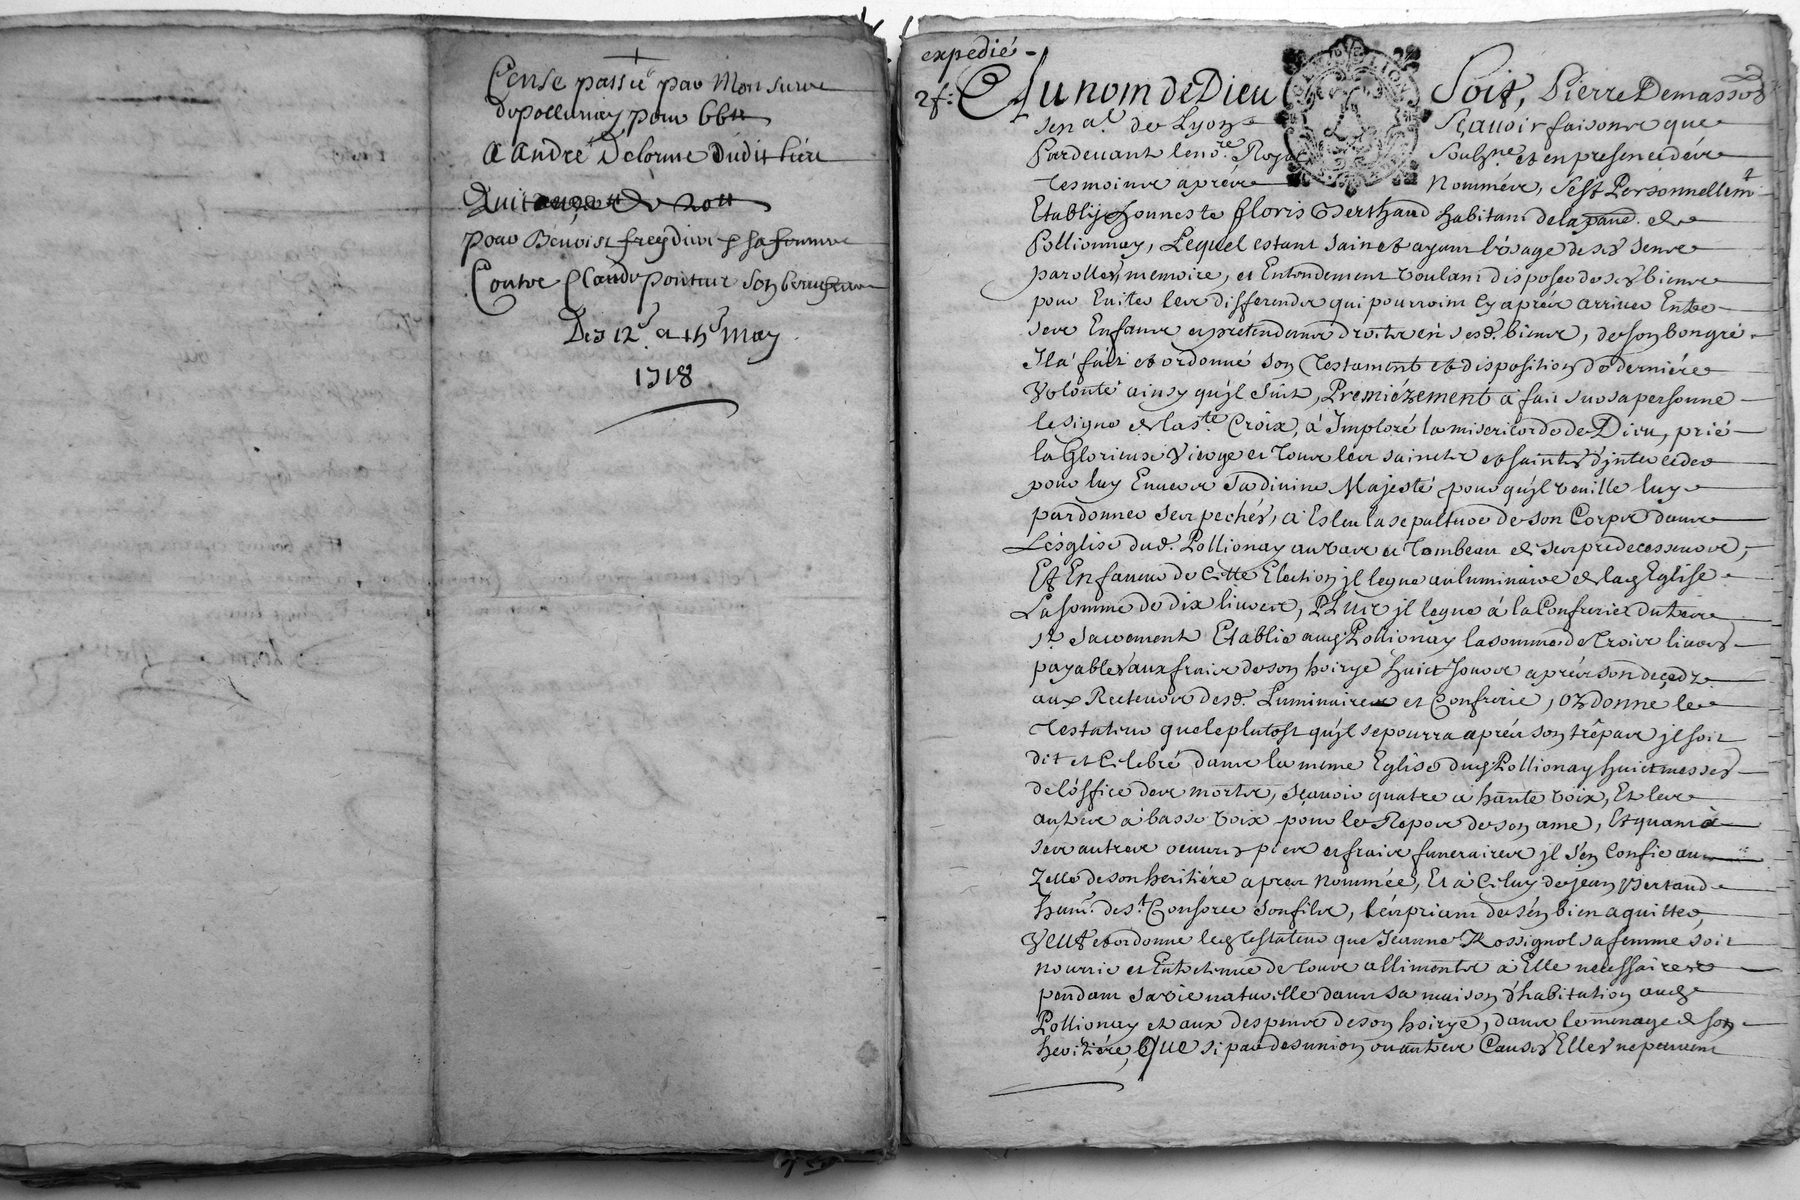 Cense passée par Monsieur
de pollionay pour 66tt
a andré Delorme dudit lieu
Quittance de 20tt
pour Benoist freydiere & sa femme
Contre Claude ponture son beaufrere
Des 12e & 15e May
1718
expedié
2f:
Au nom de Dieu Soit, Pierre Demassod
senal. de Lyon Sçavoir faisons que
Pardevant le nore. Royal Soubzne. et en presence des
tesmoins aprés Nommés, s'est Personnellemt.
Etably honneste floris Berthaud habitant de la parr. de
Pollionnay, Lequel estant sain et ayant l'usage de ses sens
parolles, memoire, et Entendement voulant disposer de ses biens
pour Eviter les differends qui pourroint cy aprés arriver Entre
ses Enfans et pretendans droits en sesd. biens, de son bon gré
Il a fait et ordonné son Testament et disposition de derniére
Volonté ainsy qu'jl suit, Premiérement a fait sur sa personne
le signe de la ste. Croix, à Imploré la misericorde de Dieu, prié
la Glorieuse Vierge et Tous les saincts et saintes d'jnterceder
pour luy Envers sa divine Majesté pour qu'jl veuille luy
pardonner ses pechés, a Eslu la sepulture de son Corps dans
L'ésglise dud. Pollionay au vas et Tombeau de ses predecesseurs,
Et En faveur de Cette Election jl legue au luminaire de lad Eglise
La somme de dix livres, Plus jl legue à la Confrerie du tres
st. sacrement Etablie aud Pollionay la somme de Trois livres
payables aux frais de son hoirye huict Jours aprés son decedz
aux Recteurs desd. Luminaire et Confrerie, Ordonne le
Testateur que le plutost qu'jl se pourra aprés son trêpas jl soit
dit et Celebré dans la meme Eglise dud Pollionay huict messes
de l'óffice des morts, sçavoir quatre à haute voix, Et les
autres à basse voix pour le Repos de son ame, Et quant à
ses autres oeuvres pies et frais funeraires jl s'en Confie au
Zelle de son heritiére apres nommée, Et à Celuy de jean Bertaud
hant. de st. Consorce son fils, les priant de s'én bien aquitter,
Veut et ordonne led Testateur que Jeanne Rossignol sa femme soit
nourrie et Entretenue de tous alliments à Elle necessaires
pendant sa vie naturelle dans sa maison d'habitation aud
Pollionay et aux despens de son hoirye, dans le menage de son
heritiére, Que si par desunion ou autres Causes Elles ne peuvent